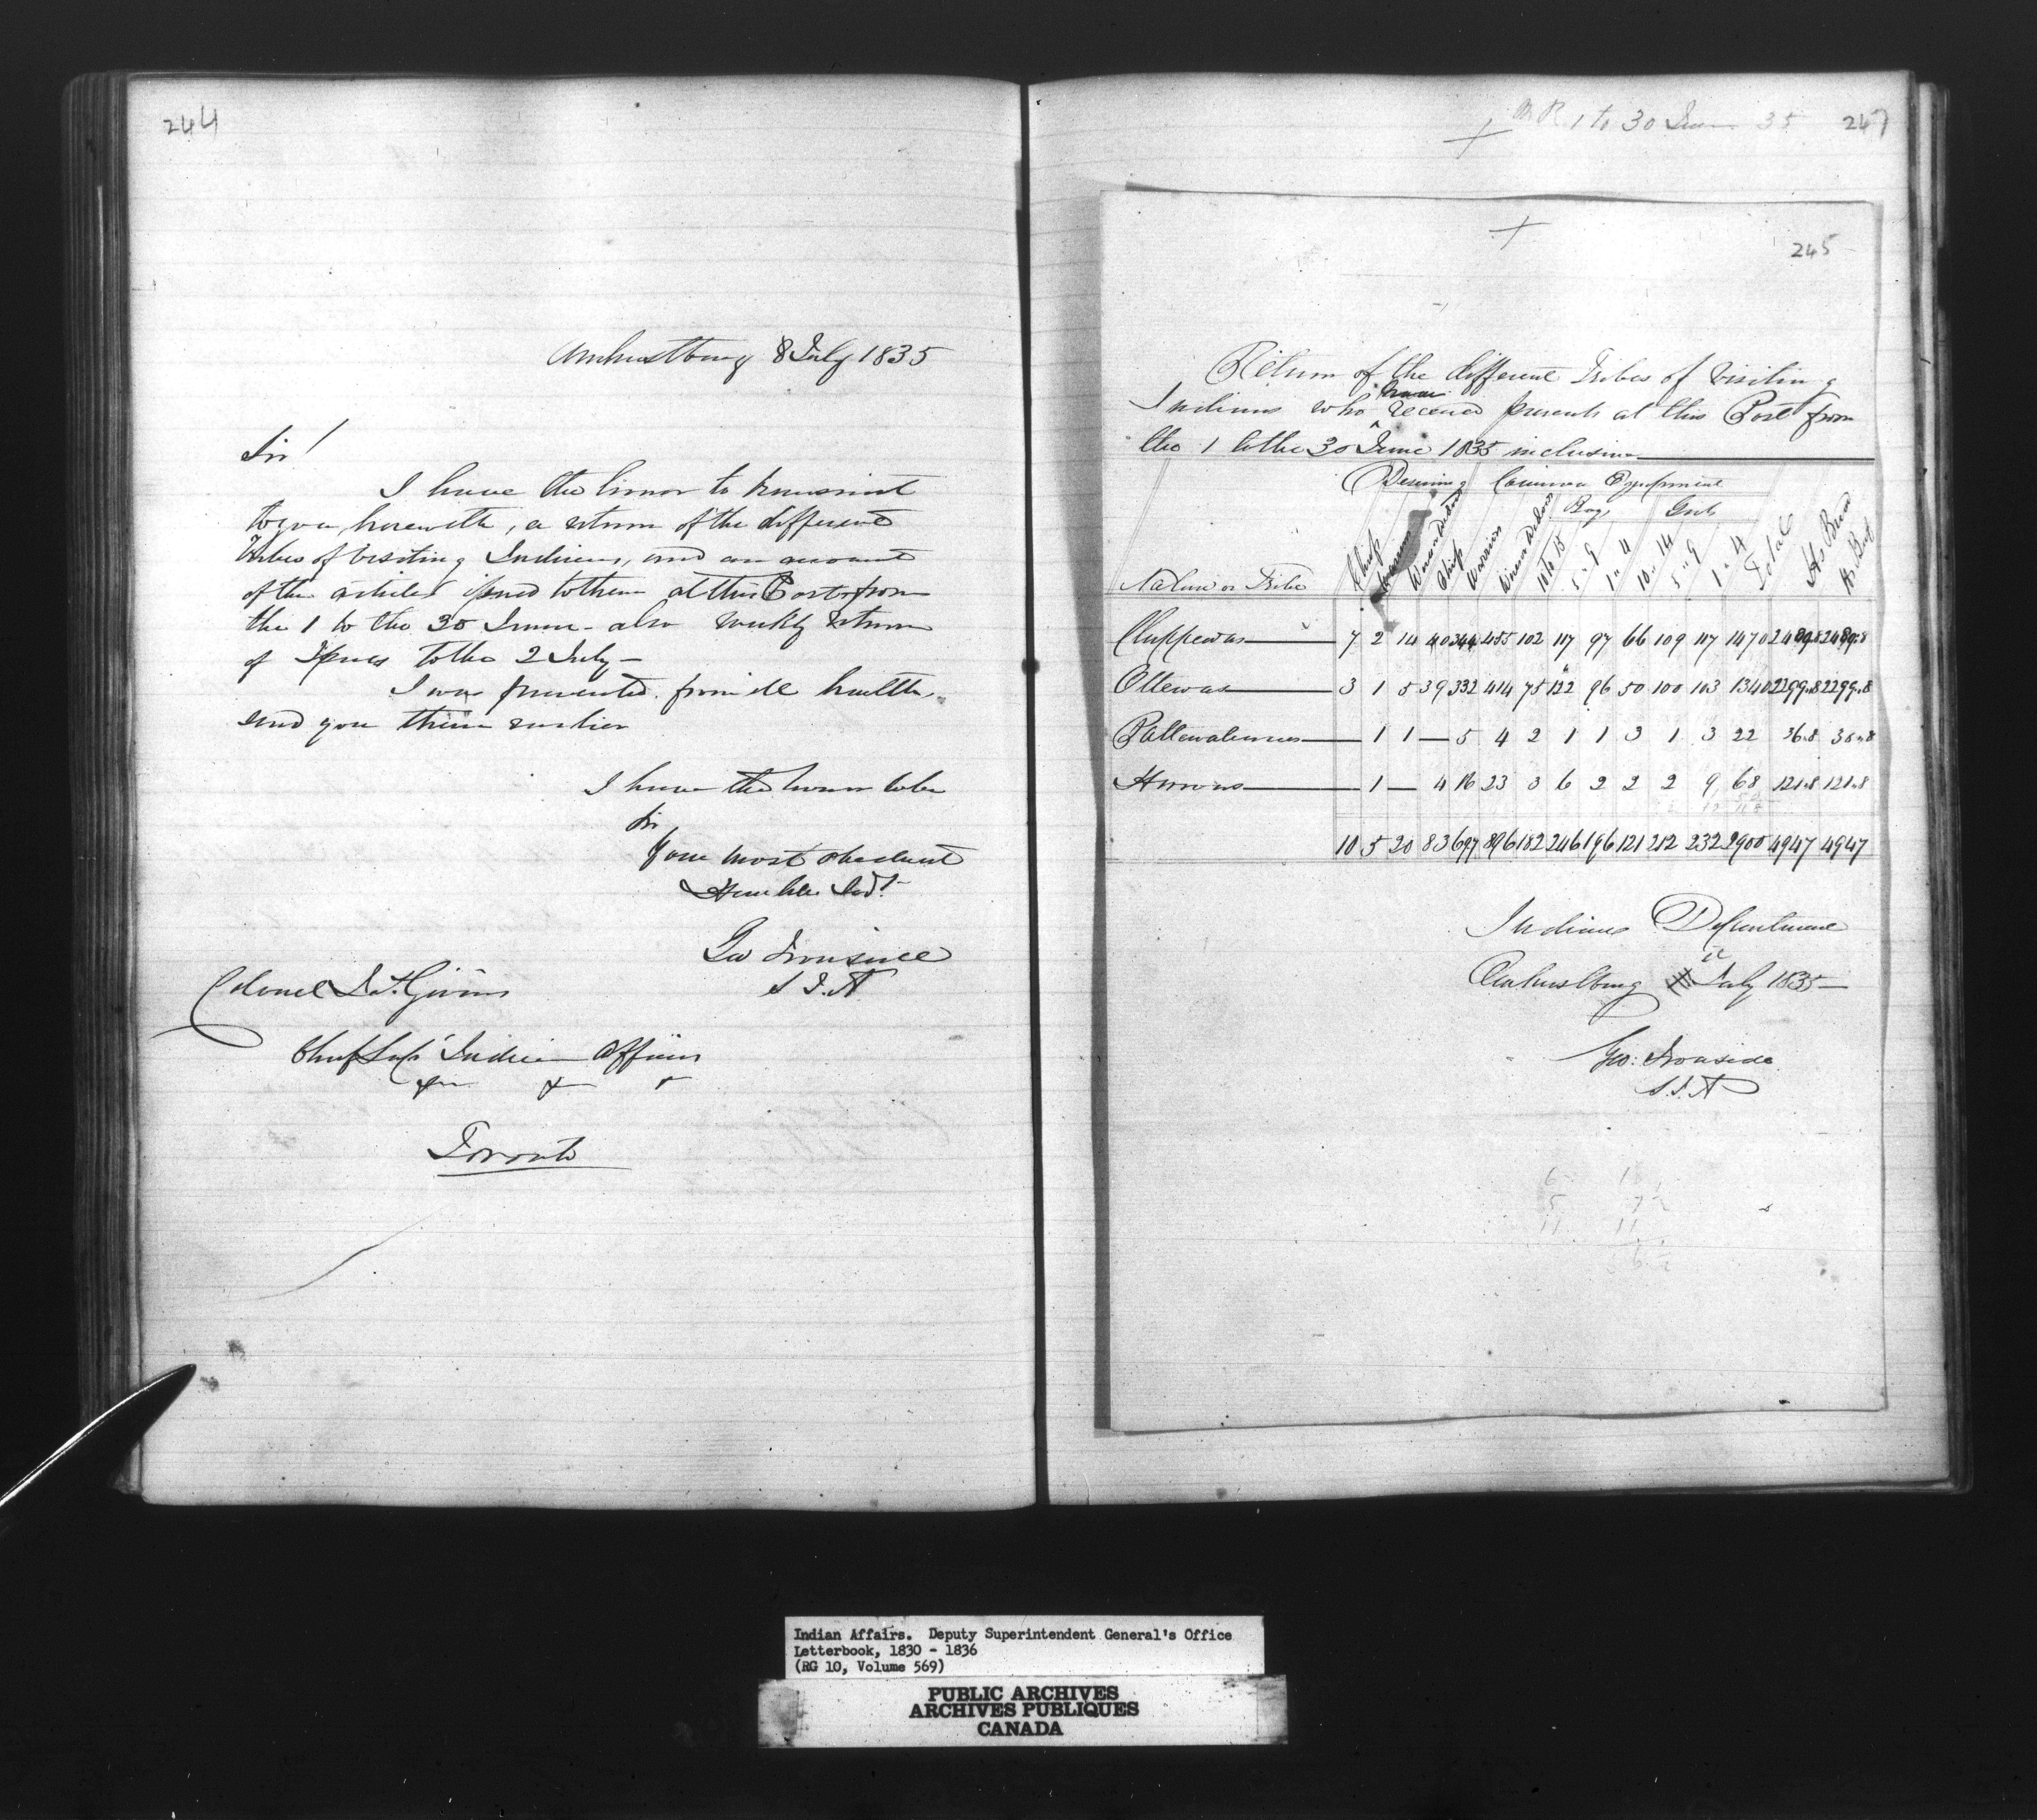 244
Amherstburg 8 July 1835
Sir!
I have the honor to transmit
to you, herewith, a return of the different
Tribes of visiting Indians, and an account
of the articles issued to them at this Post from
the 1 to the 30 June - also weekly return
of Issues to the 2 July -
I was prevented from ill health
send you them earlier
I have the honor to be
Sir
Your most obedient
Humble Servt.
Geo Ironside
S I. A
Colonel Js. Givins
Chief Supt Indian Affairs
&c &c &c
Toronto
1 to 30 June 35 247
245
Return of the different Tribes of visiting
Indians who have received presents at this Post from
the 1 to the 30 June 1835 inclusive
Common Equipment
Boys Girls
Nation or Tribe Chiefs Warriors Chiefs Warriors 10 to 15 5 " 9 1 " 4 10 " 14 5 " 9 1 " 4 Total lbs Bread lbs Beef
Chippewas 7 2 14 40 344 455 102 117 97 66 109 117 1470 2489.8 2489.8
Ottewas 3 1 5 39 332 414 75 122 96 50 100 103 1340 2299.8 2299.8
Pattewatimies 1 1 — 5 4 2 1 1 3 1 3 22 36.8 36.8
Hurons 1 — 4 16 23 3 6 2 2 2 9 68 121.8 121.8
10 5 20 83 697 896 182 246 196 121 212 232 2900 4947 4947
Indian Department
Amherstburg July 1835
Geo: Ironside
S. I. A
6 18
5 7½
11 11
Indian Affairs. Deputy Superintendent General's Office
Letterbook, 1830 - 1836
(RG 10, Volume 569)
PUBLIC ARCHIVES
ARCHIVES PUBLIQUES
CANADA